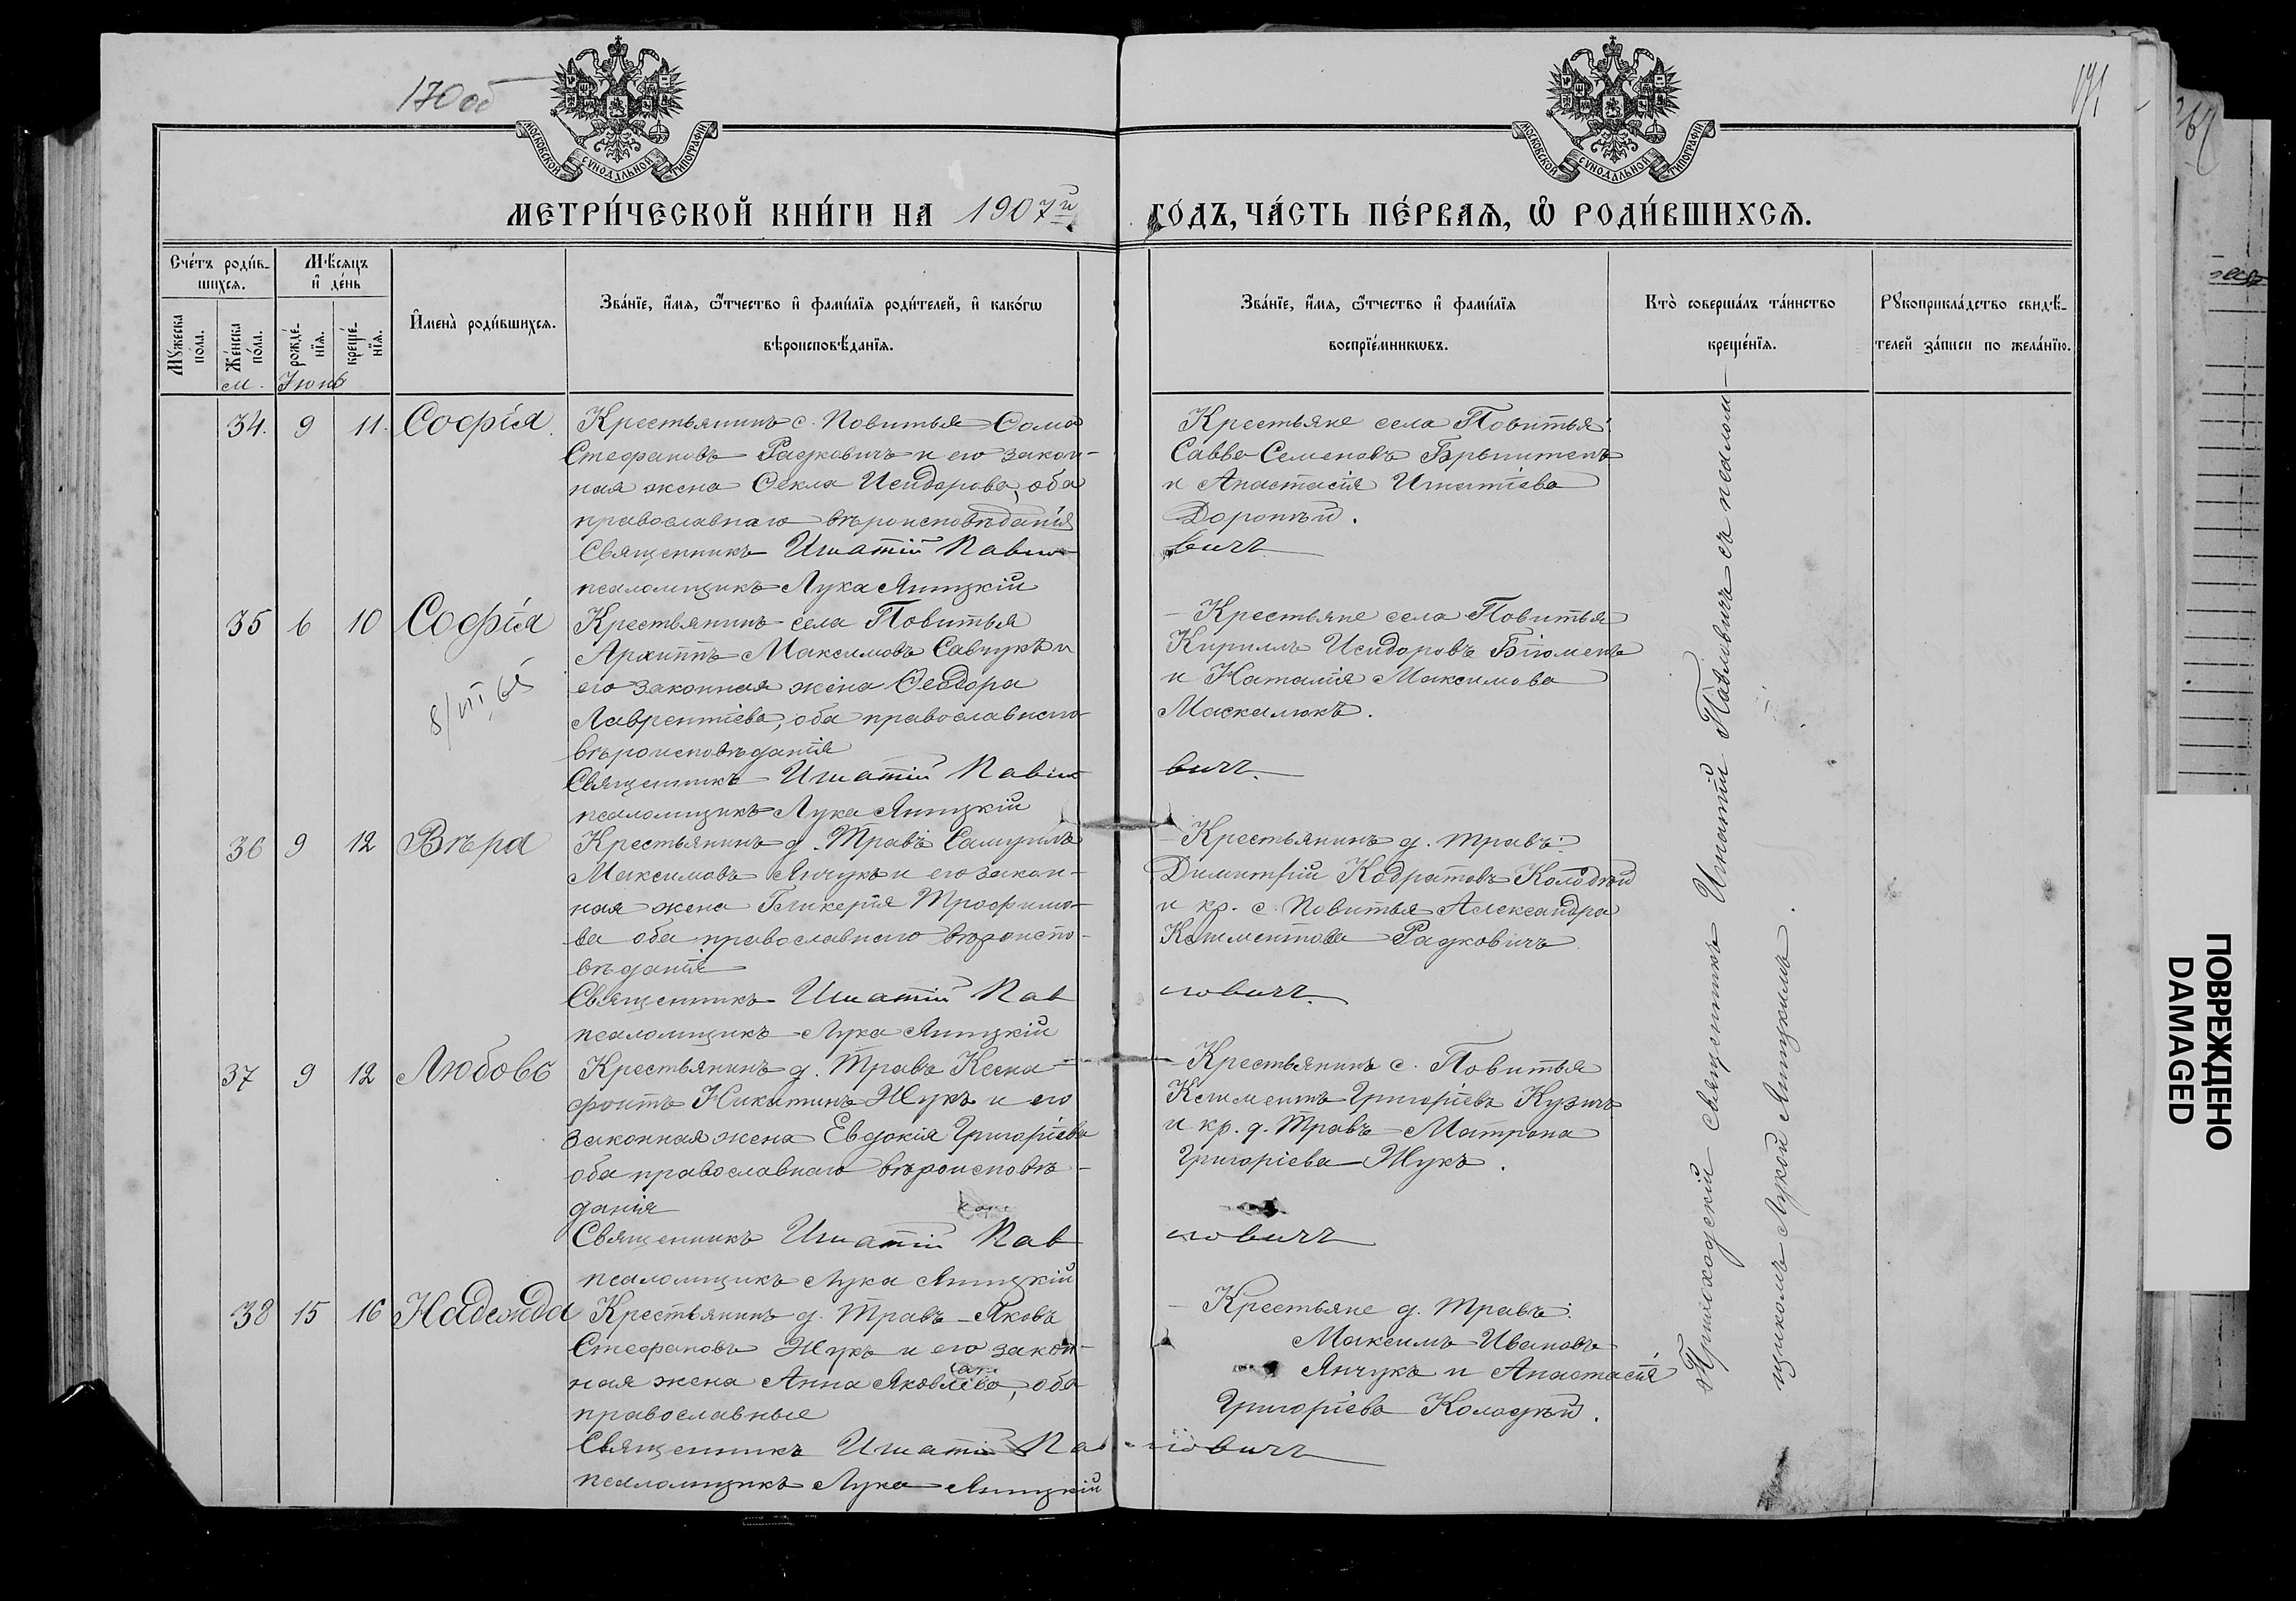 170 об
171
МОСКОВСКОЙ СУНОДАЛЬНОЙ ТИПОГРАФІИ
МОСКОВСКОЙ СУНОДАЛЬНОЙ ТИПОГРАФІИ
МЕТРИ́ЧЕСКОЙ КНИ́ГИ НА 1907й ГО́ДЪ, ЧА́СТЬ ПЕ́РВАЯ, Ѡ҆ РОДИ́ВШИХСЯ.
Сче́тъ роди́в-
шихся.
Мѣсяцъ
и҆ де́нь
Мꙋжеска
по́ла.
Же́нска
по́ла.
рожде́-
нїя.
креще́-
нїя.
И҆мена̀ роди́вшихся.
Зва́нїе, и҆́мя, ѻ҆́тчество и҆ фами́лїя роди́телей, и҆ како́гѡ
вѣроисповѣ́данїя.
Зва́нїе, и҆́мя, ѻ҆́тчество и҆ фами́лїя
воспрїе́мникѡвъ.
Кто̀ соверша́лъ та́инство
креще́нїя.
Рꙋкоприкла́дство свидѣ́-
телей за́писи по жела́нїю.
м. Іюнь
34. 9 11. Софія.
Крестьянинъ с. Повитья Ѳома
Стефановъ Радковичъ и его закон-
ная жена Ѳекла Исидорова, оба
православнаго вѣроисповѣданія
Священникъ Игнатій Павло-
вичъ
псаломщикъ Лука Яницкій
Крестьяне села Повитья:
Савва Семеновъ
и Анастасія Игнатіева
35 6 10 Софія
8/VII 65
Крестьянинъ села Повитья
Архиппъ Максимовъ Савчукъ и
его законная жена Ѳеодора
Лаврентіева, оба православнаго
вѣроисповѣданія
Священникъ Игнатій Павло-
вичъ.
псаломщикъ Лука Яницкій
Крестьяне села Повитья
Кириллъ Исидоровъ
и Наталія Максимова
Маскалюкъ.
36 9 12 Вѣра
Крестьянинъ д. Травъ Самуилъ
Максимовъ Янчукъ и его закон-
ная жена Гликерія Трофимо-
ва оба православнаго вѣроиспо-
вѣданія
Священникъ Игнатій Пав
ловичъ.
псаломщикъ Лука Яницкій
Крестьянинъ д. Травъ:
Димитрій Кодратовъ Колодѣй
и кр. с. Повитья Александра
Климентова Радковичъ
37 9 12 Любовь
Крестьянинъ д. Травъ Ксено-
фонтъ Никитинъ Жукъ и его
законная жена Евдокія Григоріева
оба православнаго вѣроисповѣ-
данія
Священникъ Игнатій Пав
ловичъ
псаломщикъ Лука Яницкій
Крестьянинъ с. Повитья
Климентъ Григоріевъ Кузичъ
и кр. д. Травъ Матрона
Григоріева Жукъ.
38 15 16 Надежда
Крестьянинъ д. Травъ Яковъ
Стефановъ Жукъ и его закон-
ная жена Анна Яковлева, оба
православные
Священникъ Игнатій Пав
ловичъ
псаломщикъ Лука Яницкій
Крестьяне д. Травъ:
Максимъ Ивановъ
Янчукъ и Анастасія
Григоріева Колодѣй.
Приходскій священникъ Игнатій Павловичъ съ псалом-
щикомъ Лукой Яницкимъ.
ПОВРЕЖДЕНО
DAMAGED